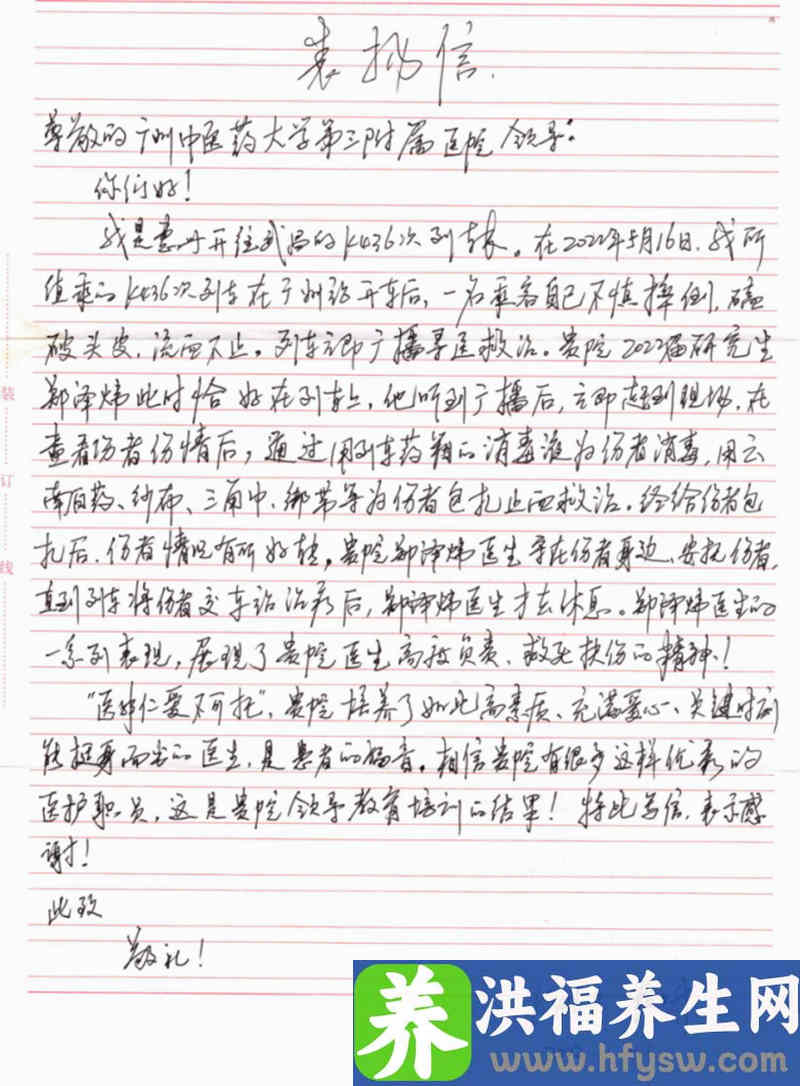 表扬信
尊敬的广州中医药大学第三附属医院领导：
你们好！
我是惠州开往武昌的K436次列车长。在2022年5月16日，我所
值乘的K436次列车在广州站开车后，一名乘客自己不慎摔倒，磕
破头皮，流血不止。列车立即广播寻医救治。贵院2022届研究生
郑泽炜此时恰好在列车上，他听到广播后，立即赶到现场，在
查看伤者伤情后，通过用列车药箱的消毒液为伤者消毒，用云
南白药、纱布、三角巾、绷带等为伤者包扎止血救治。经给伤者包
扎后，伤者情况有所好转，贵院郑泽炜医生守在伤者身边、安抚伤者，
直到列车将伤者交车站治疗后，郑泽炜医生才去休息。郑泽炜医生的
一系列表现，展现了贵院医生高效负责、救死扶伤的精神！
“医者仁爱不可托”，贵院培养了如此高素质、充满爱心、关键时刻
能挺身而出的医生，是患者的福音。相信贵院有很多这样优秀的
医护职员，这是贵院领导教育培训的结果！特此写信，表示感
谢！
此致
敬礼！
装
订
线
养 洪福养生网
www.hfysw.com